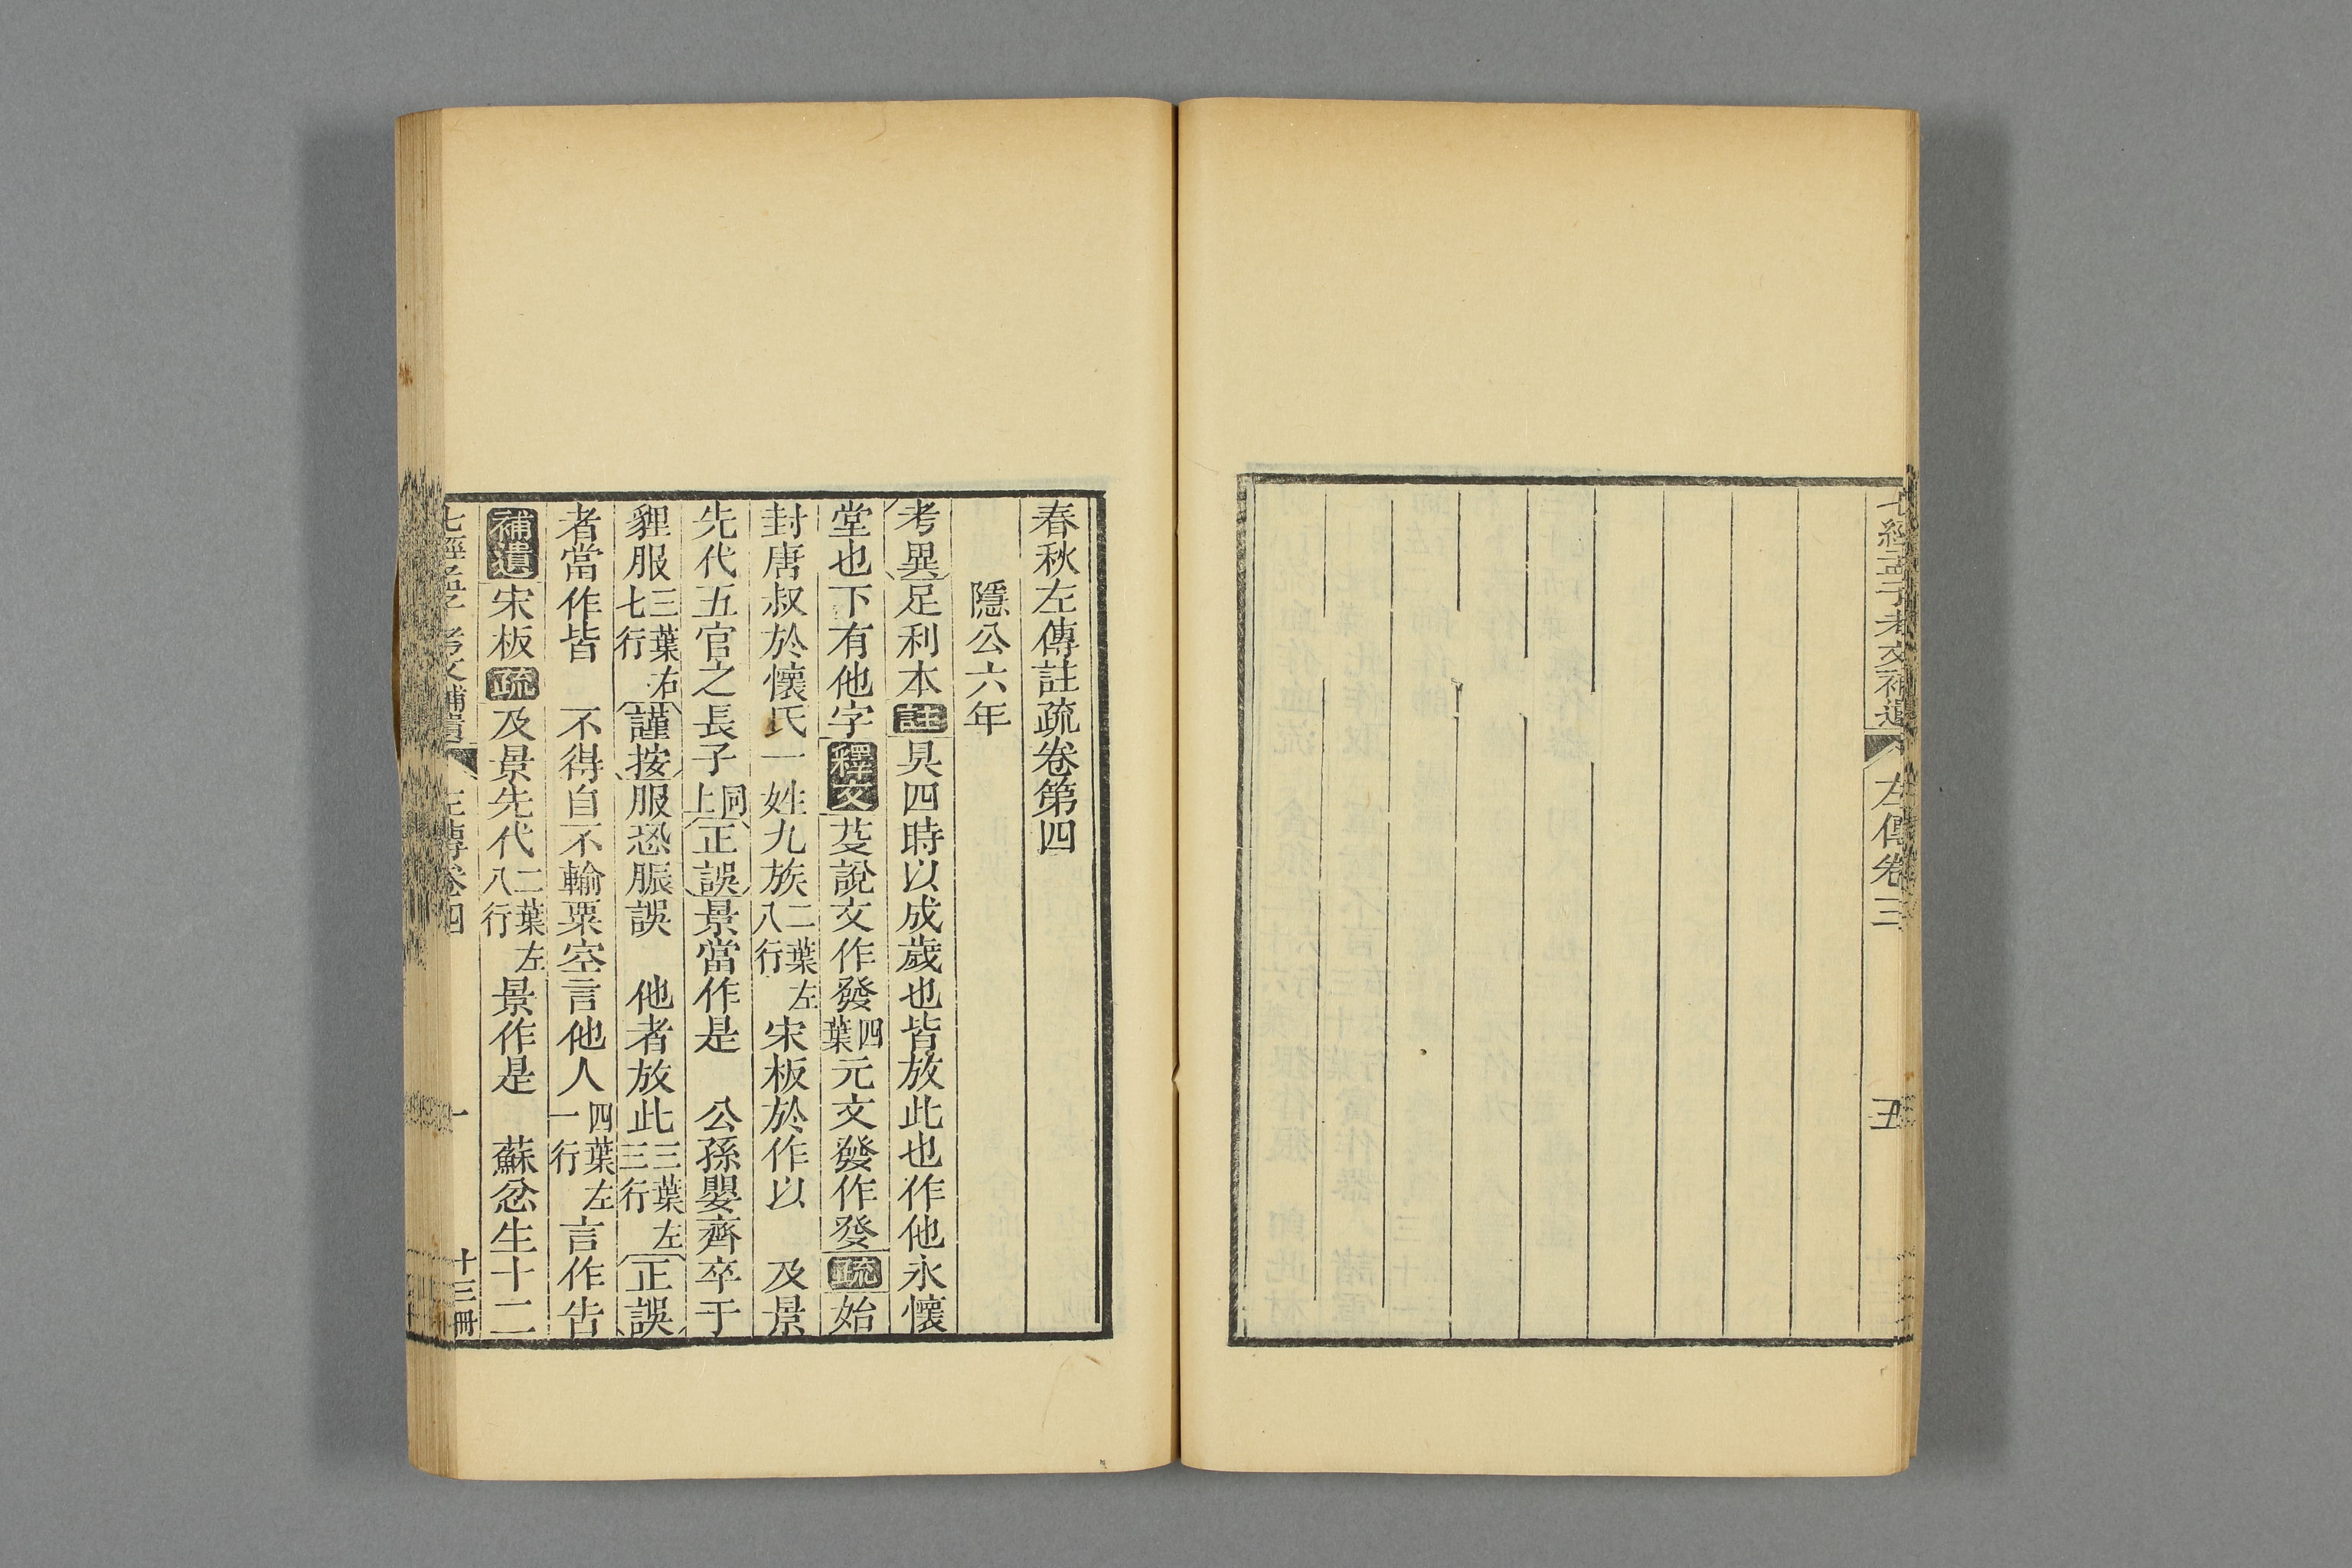 七經孟子考文補遺 左傳卷三 五
春秋左傳註疏卷第四
隱公六年
考異足利本註具四時以成歲也皆放此也作他永懷
堂也下有他字釋文芟說文作發四葉元文發作癹疏始
封唐叔於懷氏一姓九族二葉左八行宋板於作以 及景
先代五官之長子同上正誤景當作是 公孫嬰齊卒于
貍服三葉右七行謹按服恐脤誤 他者放此三葉左三行正誤
者當作皆 不得自不輸粟空言他人四葉左一行言作告
補遺宋板疏及景先代二葉左八行景作是 蘇忿生十二
七經孟子考文補遺 左傳卷四 一 十三冊